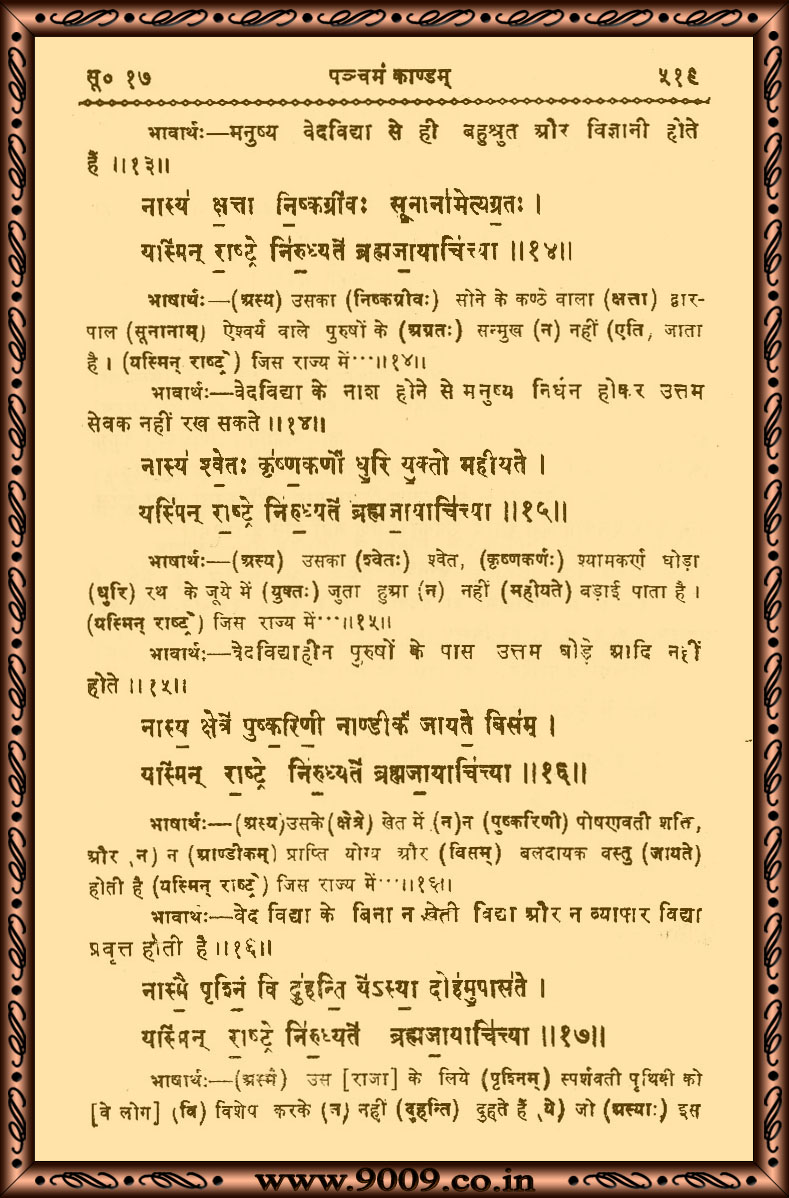 सू० १७ पञ्चमं काण्डम् ५१९
भावार्थः—मनुष्य वेदविद्या से ही बहुश्रुत और विज्ञानी होते
हैं ॥१३॥
नास्य॑ क्ष॒त्ता नि॒ष्कग्री॑वः सू॒नाना॑मेत्यग्र॒तः ।
यस्मि॑न् रा॒ष्ट्रे नि॑रु॒ध्यते॑ ब्रह्मजा॒याचि॑त्त्या ॥१४॥
भाषार्थः—(अस्य) उसका (निष्कग्रीवः) सोने के कण्ठे वाला (क्षत्ता) द्वार-
पाल (सूनानाम्) ऐश्वर्य वाले पुरुषों के (अग्रतः) सन्मुख (न) नहीं (एति, जाता
है । (यस्मिन् राष्ट्रे) जिस राज्य में···॥१४॥
भावार्थः—वेदविद्या के नाश होने से मनुष्य निर्धन होकर उत्तम
सेवक नहीं रख सकते ॥१४॥
नास्य॑ श्वे॒तः कृ॑ष्ण॒कर्णो॑ धु॒रि यु॒क्तो म॑हीयते ।
यस्मि॑न् रा॒ष्ट्रे नि॑रु॒ध्यते॑ ब्रह्मजा॒याचि॑त्त्या ॥१५॥
भाषार्थः—(अस्य) उसका (श्वेतः) श्वेत, (कृष्णकर्णः) श्यामकर्ण घोड़ा
(धुरि) रथ के जूये में (युक्तः) जुता हुआ (न) नहीं (महीयते) बड़ाई पाता है ।
(यस्मिन् राष्ट्रे) जिस राज्य में···॥१५॥
भावार्थः—वेदविद्याहीन पुरुषों के पास उत्तम घोड़े आदि नहीं
होते ॥१५॥
नास्य॒ क्षेत्रे॑ पुष्क॒रिणी॒ नाण्डीकं॑ जायते॒ बिस॑म् ।
यस्मि॑न् रा॒ष्ट्रे नि॑रु॒ध्यते॑ ब्रह्मजा॒याचि॑त्त्या ॥१६॥
भाषार्थः—(अस्य)उसके(क्षेत्रे) खेत में (न)न (पुष्करिणी) पोषणवती शक्ति,
और (न) न (आण्डीकम्) प्राप्ति योग्य और (विसम्) बलदायक वस्तु (जायते)
होती है (यस्मिन् राष्ट्रे) जिस राज्य में···॥१६॥
भावार्थः—वेद विद्या के बिना न खेती विद्या और न व्यापार विद्या
प्रवृत्त होती है ॥१६॥
नास्मै॒ पृश्निं॒ वि दु॑हन्ति॒ ये॑ऽस्या॒ दोह॑मु॒पास॑ते ।
यस्मि॑न् रा॒ष्ट्रे नि॑रु॒ध्यते॑ ब्रह्मजा॒याचि॑त्त्या ॥१७॥
भाषार्थः—(अस्मै) उस [राजा] के लिये (पृश्निम्) स्पर्शवती पृथिवी को
[वे लोग] (वि) विशेष करके (न) नहीं (दुहन्ति) दुहते हैं (ये) जो (अस्याः) इस
www.9009.co.in